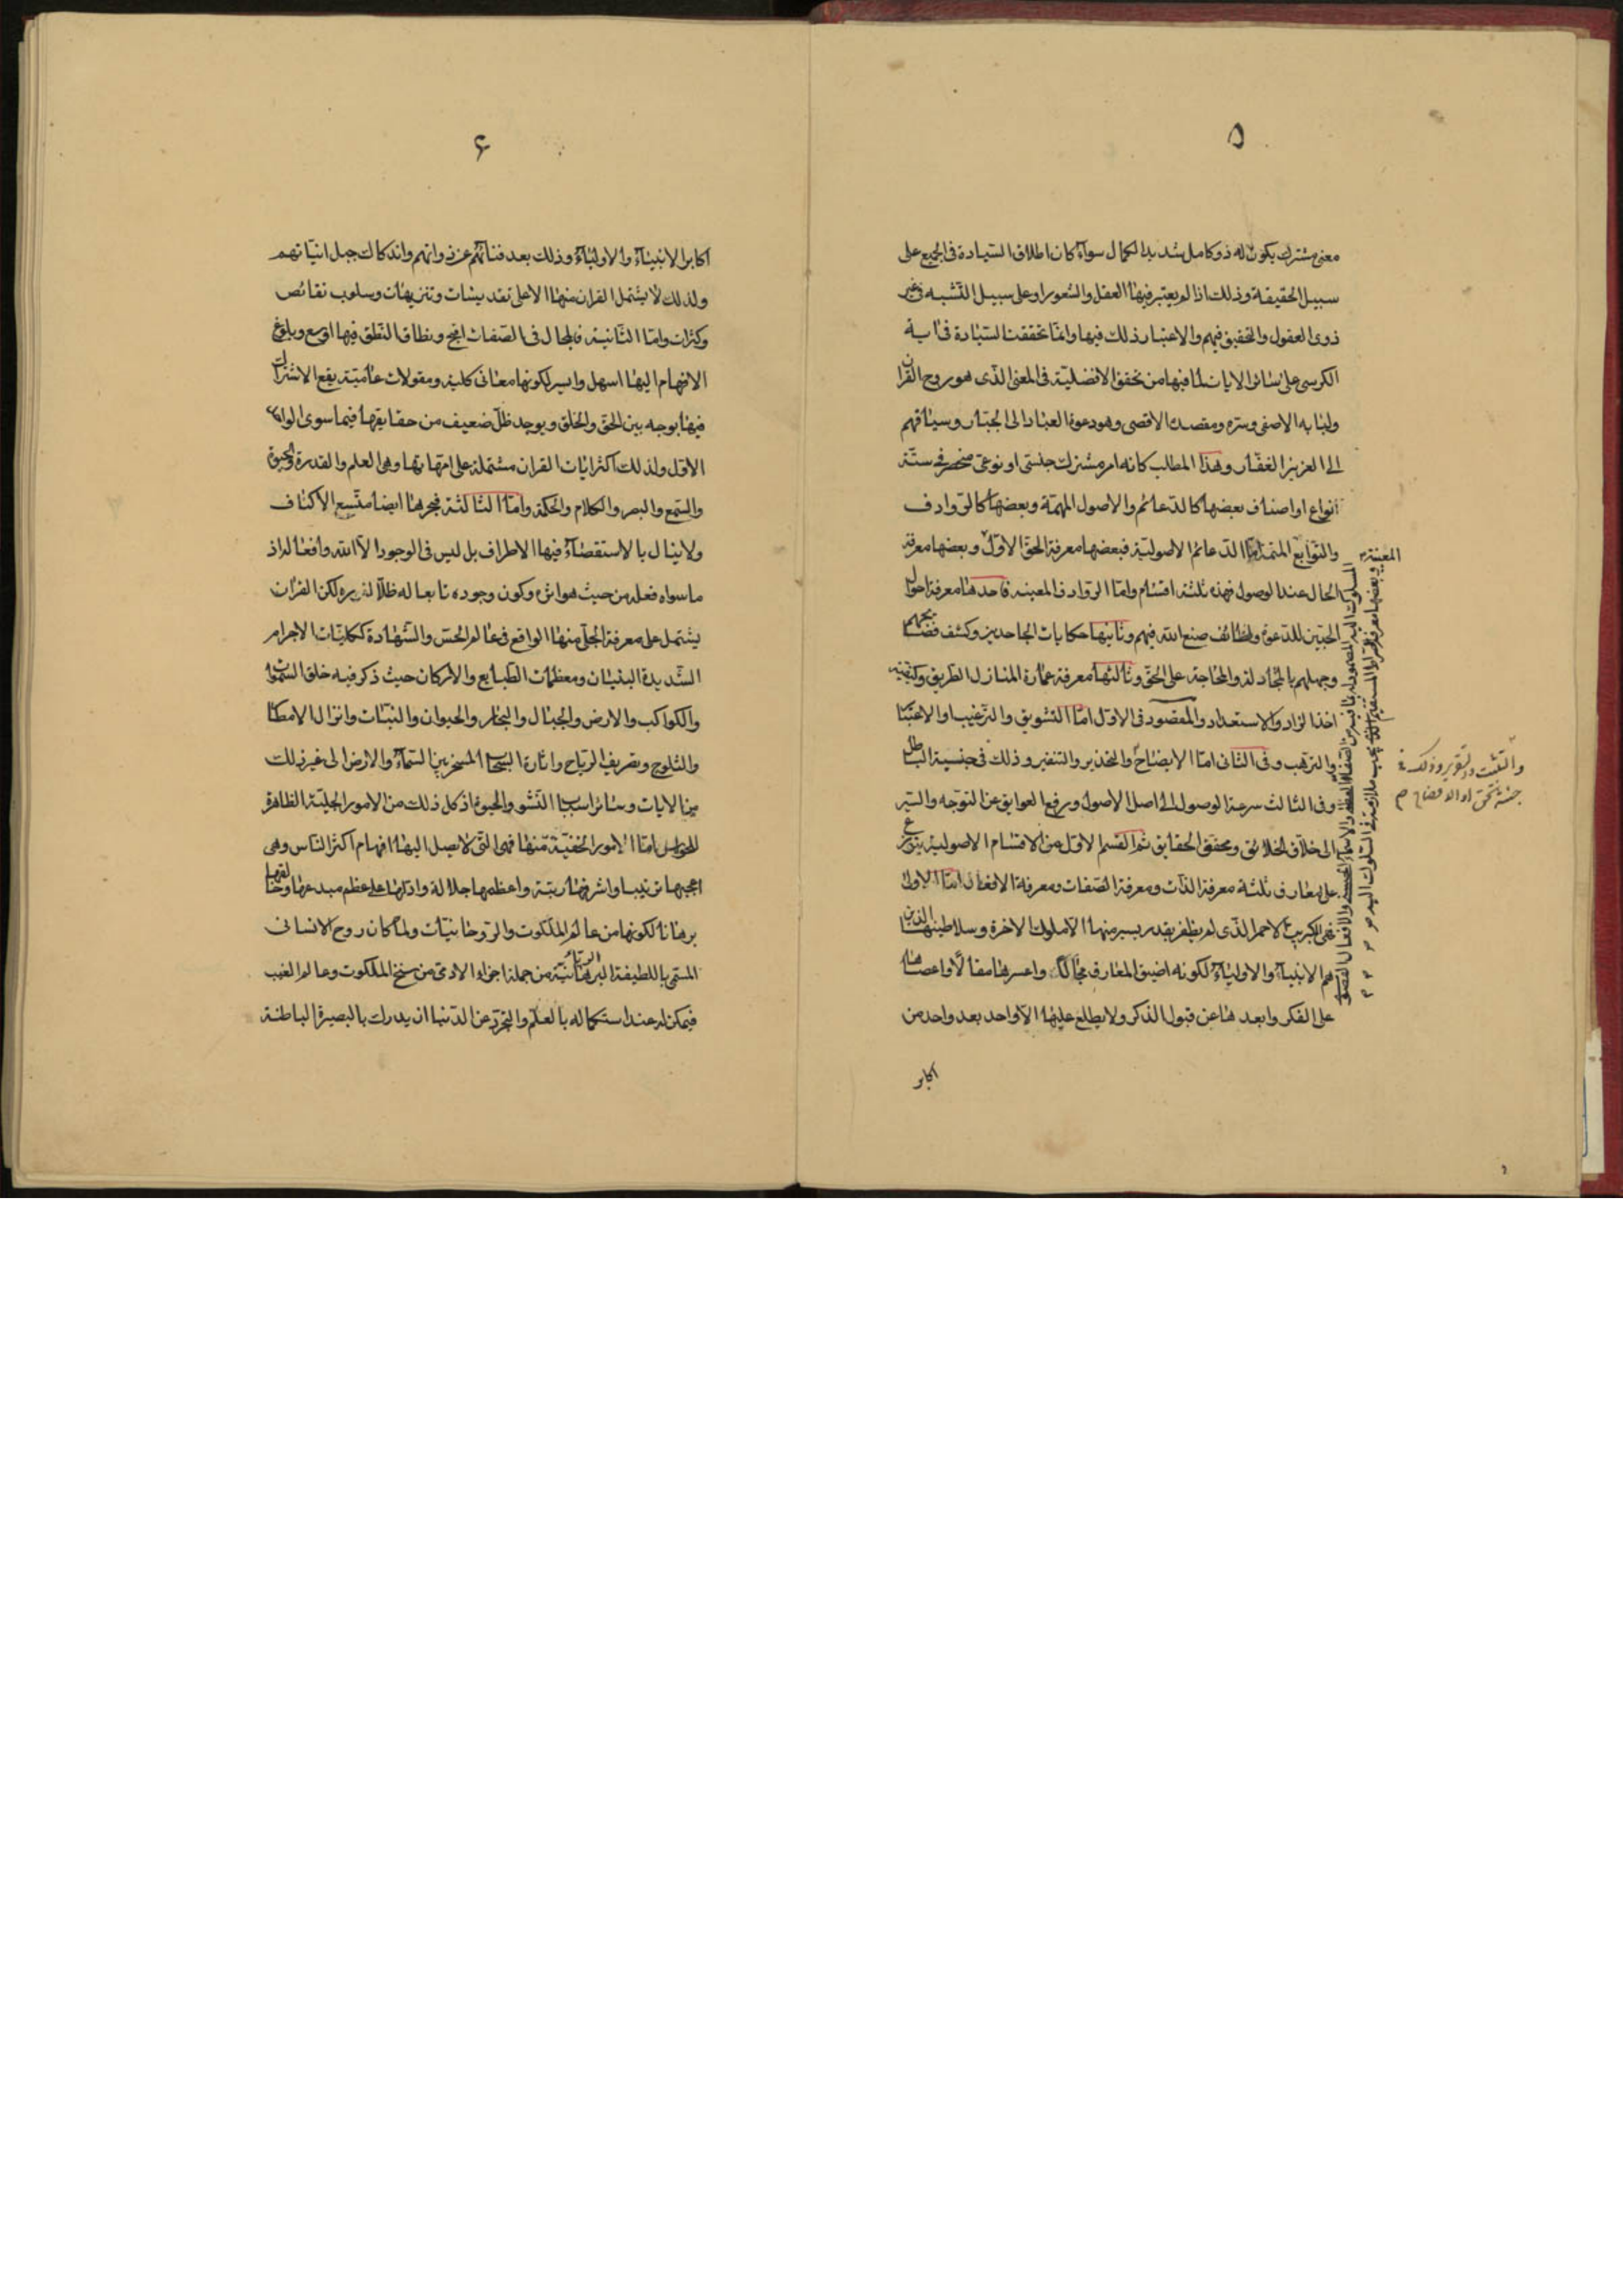 ۵
معنى مشترك يكون له ذو كامل شديد الكمال سوآء كان اطلاق السيادة فى الجميع على
سبيل الحقيقة وذلك اذا لم يعتبر فيها العقل والشعور او على سبيل التشبه فى غير
ذوى العقول والتحقيق فيهم والاعتبار ذلك فيها وانما تحققت السيادة فى اية
الكرسى على سائر الايات لما فيها من تحقق الافضلية فى المعنى الذى هو روح القران
ولبابه الاصفى وسره ومقصده الاقصى وهو دعوة العباد الى الجبار وسياقهم
الى العزيز الغفار وهذا المطلب كانه امر مشترك جنسى او نوعى منحصر فى ستة
انواع او اصناف بعضها كالدعائم والاصول المهمة وبعضها كالروادف
والتوابع المتمة اما الدعائم الاصولية فبعضها معرفة الحق الاول وبعضها معرفة
الحال عند الوصول فهذه ثلثة اقسام واما الروادف المعينة فاحدها معرفة احوال
المجيبين للدعوة ولطائف صنع الله فيهم وثانيها حكايات الجاحدين وكشف فضائحهم
وجهلهم بالمجادلة والمحاجة على الحق وثالثها معرفة عمارة المنازل الطريق وكيفية
اخذ الزاد والاستعداد والمقصود فى الاول اما التشويق والترغيب او الاعتبار
والترهب وفى الثانى اما الايضاح والتحذير والتنفير وذلك فى جنسية الباطل
وفى الثالث سرعة الوصول الى اصل الاصول ورفع العوايق عن التوجه والسير
الى خلاق الخلائق ومحقق الحقايق ثم القسم الاول من الاقسام الاصولية يتوزع
على معارف ثلثة معرفة الذات ومعرفة الصفات ومعرفة الافعال اما الاولى
فهى الكبريت الاحمر الذى لم يظفر بقدر يسير منها الا ملوك الاخرة وسلاطينها الذين
هم الانبيآء والاوليآء لكونه اضيق المعارف مجالا واعسرها مقالا واعصاها
على الفكر وابعدها عن قبول الذكر ولا يطلع عليها الا واحد بعد واحد من
اكابر
المعينة
وبعضها معرفة الصراط المستقيم الذى يجب ملازمته فى السلوك اليه
والتثبت والتقرير وذلك فى
جنسية الحق او الافضاح
۶
اكابر الانبيآء والاوليآء وذلك بعد فنائهم عن ذواتهم واندكاك جبل انياتهم
ولذلك لا يشتمل القران منها الا على تقديسات وتنزيهات وسلوب نقائص
وكثرات واما الثانية فالمجال فى الصفات افسح ونطاق النطق فيها اوسع وبلوغ
الافهام اليها اسهل وايسر لكونها معانى كلية ومقولات عامية يقع الاشتراك
فيها بوجه بين الحق والخلق ويوجد ظل ضعيف من حقايقها فيما سوى الواحد
الاول ولذلك اكثر ايات القران مشتملة على امهاتها وهى العلم والقدرة والحيوة
والسمع والبصر والكلام والحكمة واما الثالثة فبحرها ايضا متسع الاكناف
ولا ينال بالاستقصاء فيها الاطراف بل ليس فى الوجود الا الله وافعاله اذ
ما سواه فعله من حيث هو اثره وكون وجوده تابعا له ظلا لغيره لكن القران
يشتمل على معرفة الجلى منها الواقع فى عالم الحس والشهادة ككليات الاجرام
الشديدة البنيان ومعظمات الطبايع والاركان حيث ذكر فيه خلق السموات
والكواكب والارض والجبال والبحار والحيوان والنبات وانزال الامطار
والثلوج وتصريف الرياح واثارة السحاب المسخر بين السمآء والارض الى غير ذلك
من الايات وسائر اسباب النشو والحيوة اذ كل ذلك من الامور الجلية الظاهرة
للحواس اما الامور الخفية منها فهى التى لا يصل اليها افهام اكثر الناس وهى
اعجبها ترتيبا واشرفها رتبة واعظمها جلالة وادلها على عظم مبدعها وخالقها
برهانا لكونها من عالم الملكوت والروحانيات ولما كان روح الانسانى
المسمى باللطيفة الربانية من جملة اجزاء الادمى من سنخ الملكوت وعالم الغيب
فيمكن له عند استكماله بالعلم والتجرد عن الدنيا ان يدرك بالبصيرة الباطنة